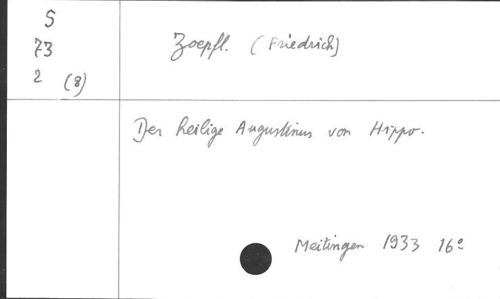 S
73
2 (8)
Zoepfl. (Friedrich)
Der heilige Augustinus von Hippo.
Meitingen 1933 16°